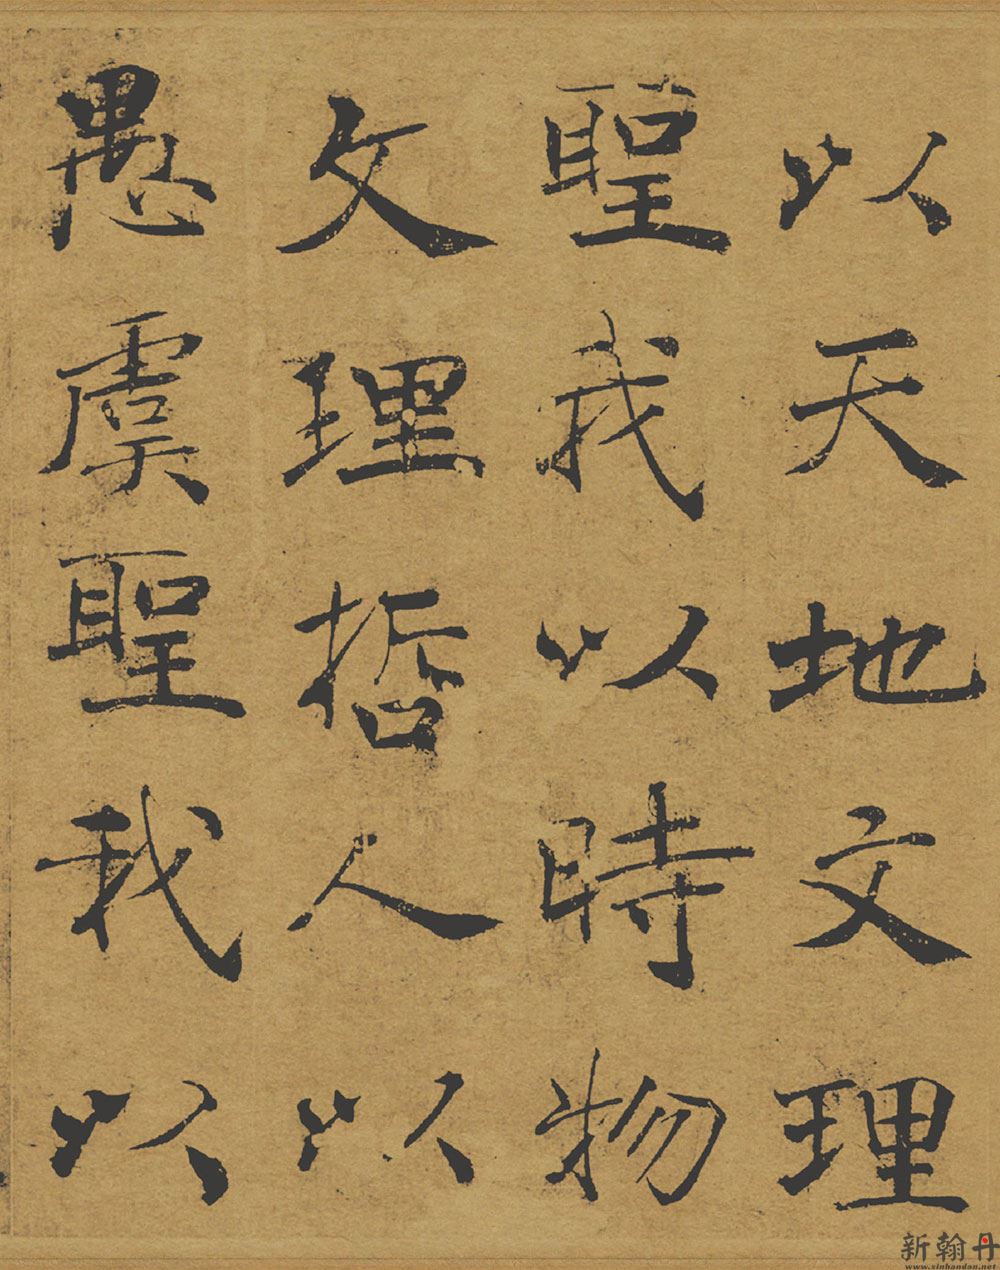 以天地文理
聖我以時物
文理哲人以
愚虞聖我以
新翰丹
www.xinhandan.net